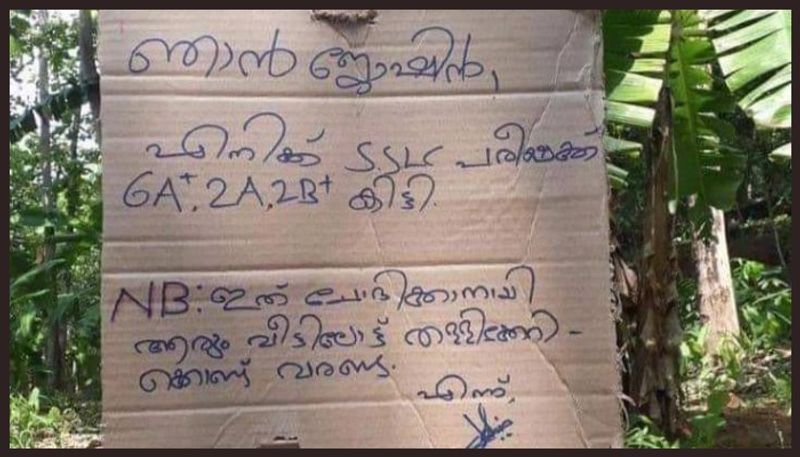 ഞാൻ ജ്യോഷിൻ,
എനിക്ക് SSLC പരീക്ഷക്ക്
6A+, 2A, 2B+ കിട്ടി.
NB: ഇത് ചോദിക്കാനായി
ആരും വീട്ടിലോട്ട് തള്ളിക്കേറി-
ക്കൊണ്ട് വരണ്ട.
എന്ന്,